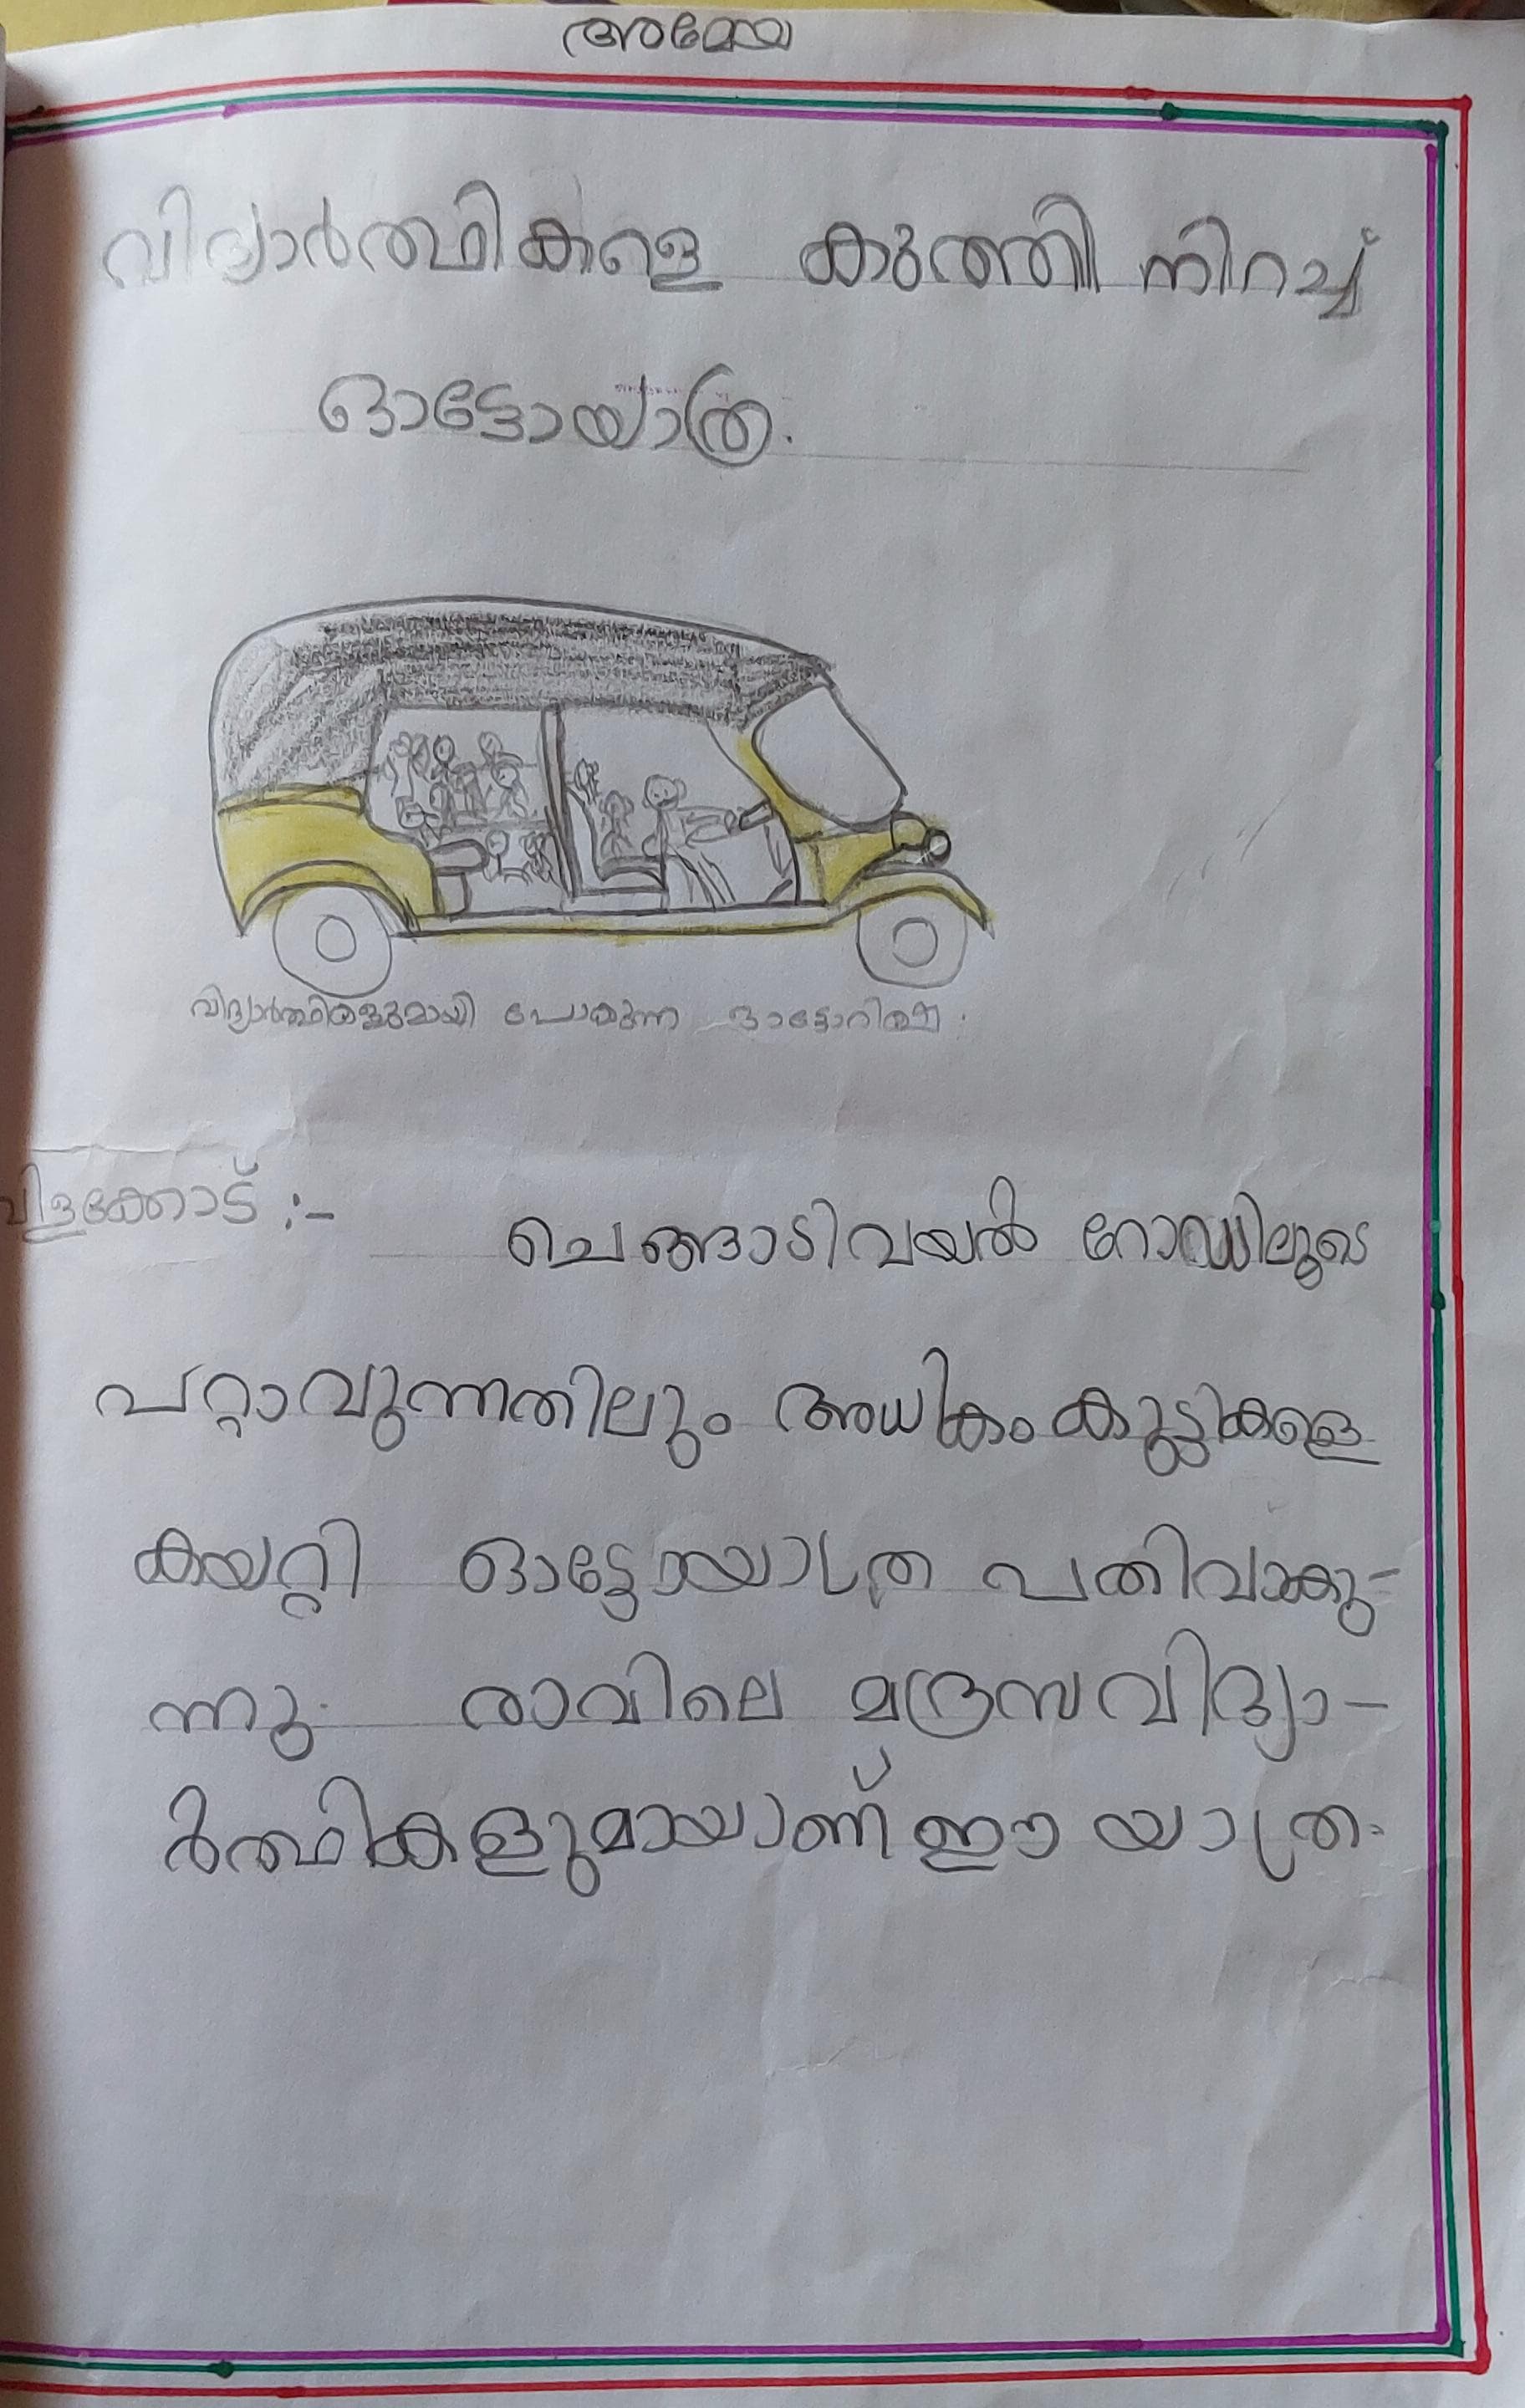 അമേയ
വിദ്യാർത്ഥികളെ കുത്തി നിറച്ച്
ഓട്ടോയാത്ര.
വിദ്യാർത്ഥികളുമായി പോകുന്ന ഓട്ടോറിക്ഷ.
വിളക്കോട് :- ചെങ്ങാടിവയൽ റോഡിലൂടെ
പറ്റാവുന്നതിലും അധികം കുട്ടികളെ
കയറ്റി ഓട്ടോയാത്ര പതിവാകു-
ന്നു. രാവിലെ മദ്രസവിദ്യാ-
ർത്ഥികളുമായാണ് ഈ യാത്ര.